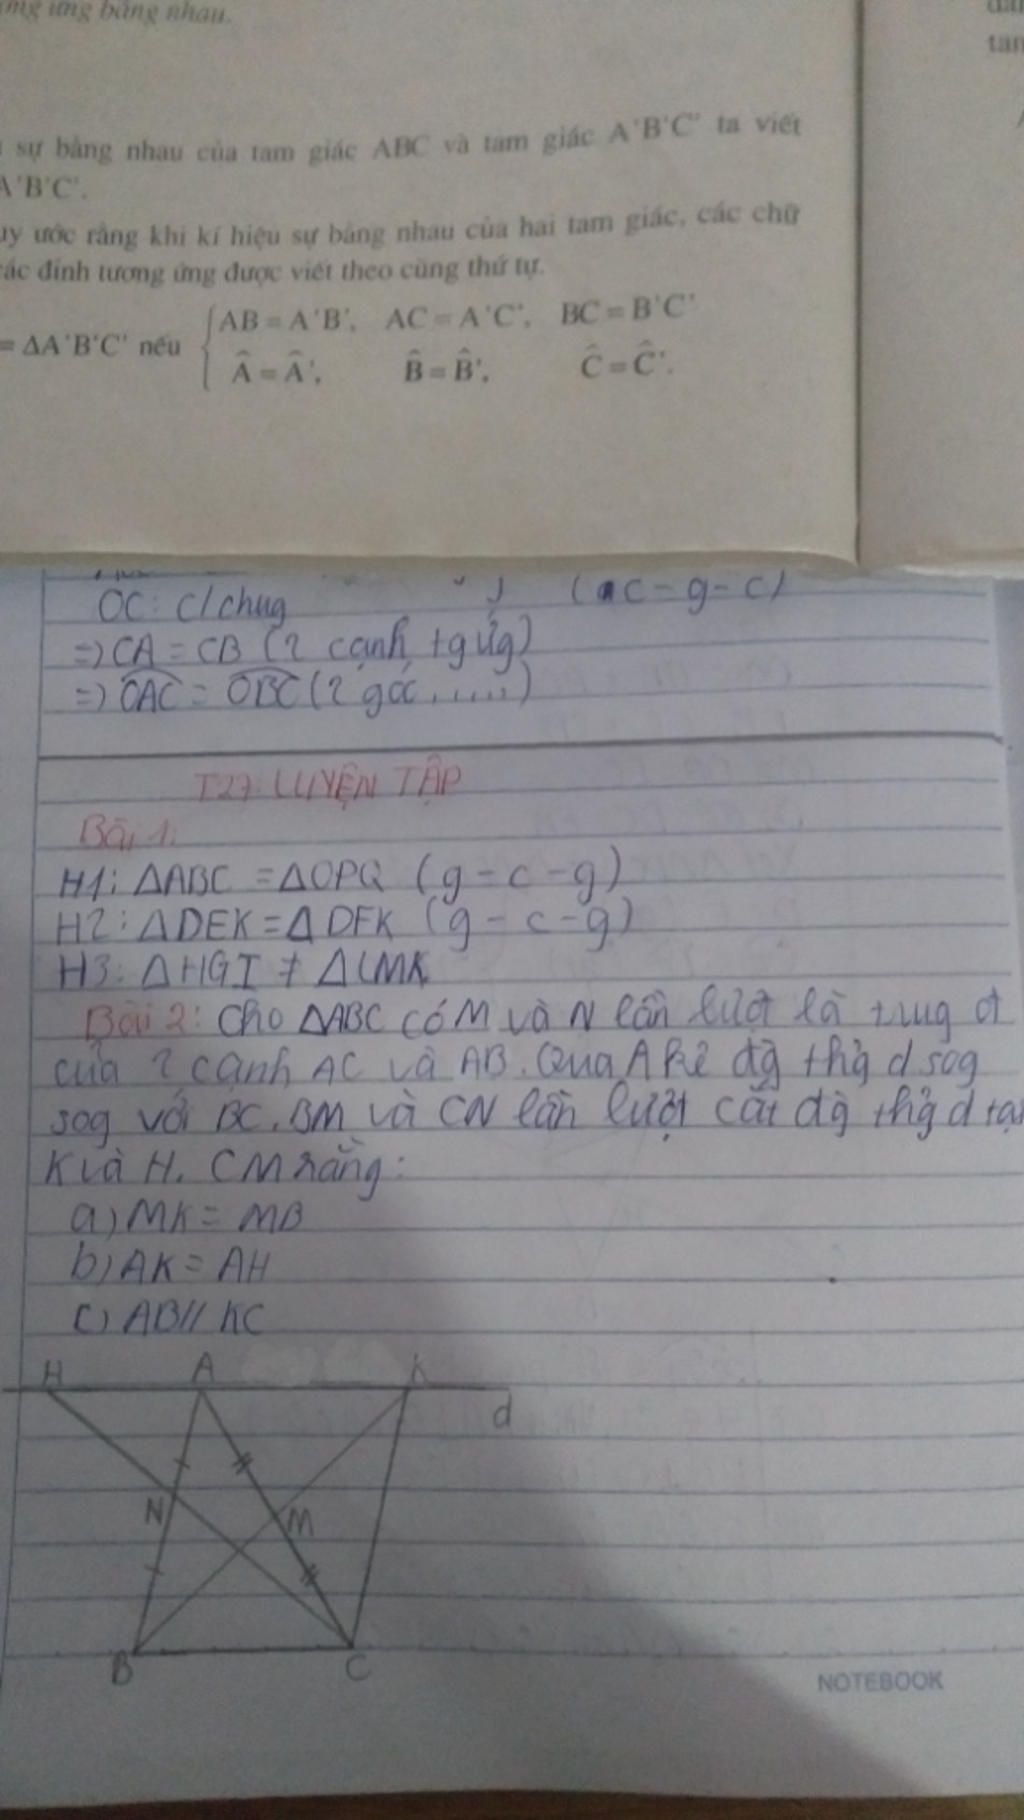 ứng bằng nhau.
sự bằng nhau của tam giác ABC và tam giác A'B'C' ta viết
A'B'C'.
uy ước rằng khi kí hiệu sự bằng nhau của hai tam giác, các chữ
các đỉnh tương ứng được viết theo cùng thứ tự.
= ΔA'B'C' nếu { AB = A'B', AC = A'C', BC = B'C'
Â = Â', B̂ = B̂', Ĉ = Ĉ'.
tam
OC: c/chug (c-g-c)
=) CA = CB (2 cạnh tgứg)
=) OAC = OBC (2 góc.....)
T27: LUYỆN TẬP
Bài 1:
H1: ΔABC = ΔOPQ (g-c-g)
H2: ΔDEK = ΔDFK (g-c-g)
H3: ΔHGI ≠ ΔLMK
Bài 2: Cho ΔABC có M và N lần lượt là trug đ
của 2 cạnh AC và AB. Qua A kẻ đg thg d sog
sog với BC. BM và CN lần lượt cắt đg thg d tại
K và H. CM rằng:
a) MK = MB
b) AK = AH
c) AB // KC
H A K
d
N M
B C
NOTEBOOK